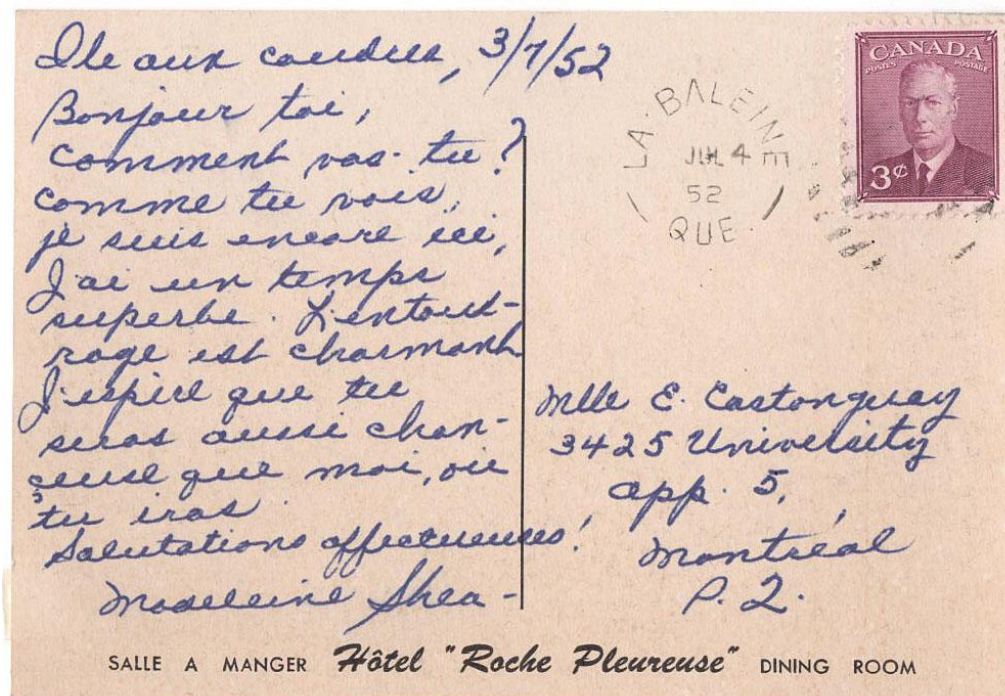 Ile aux coudres, 3/7/52
Bonjour toi,
Comment vas-tu?
Comme tu vois,
je suis encore ici,
J'ai un temps
superbe. L'entou-
rage est charmant
J'espère que tu
seras aussi chan-
ceuse que moi, où
tu iras.
Salutations affectueuses!
Madeleine Shea-
LA BALEINE
JUL 4
52
QUE.
CANADA
POSTES POSTAGE
3¢
Mlle E. Castonguay
3425 University
app. 5,
Montréal
P. Q.
SALLE A MANGER Hôtel "Roche Pleureuse" DINING ROOM